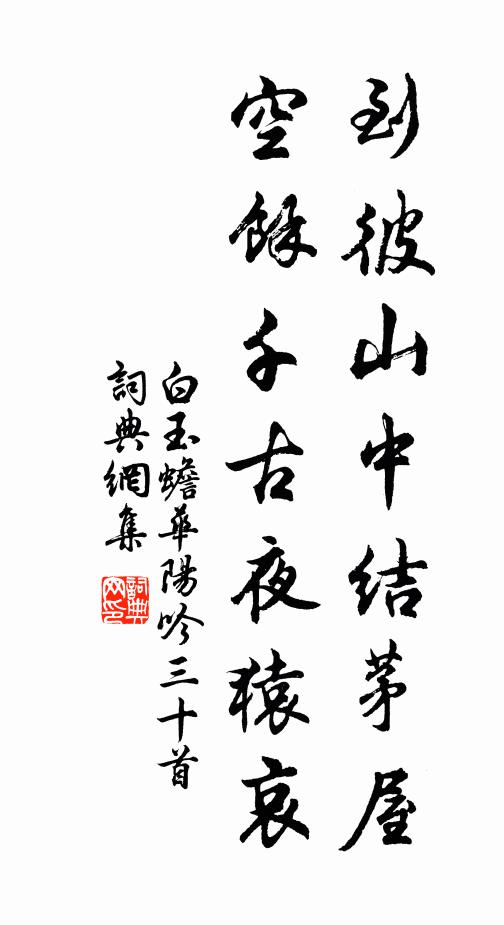 到彼山中結茅屋
空餘千古夜猿哀
白玉蟾華陽吟三十首
詞典網集
詞典網印